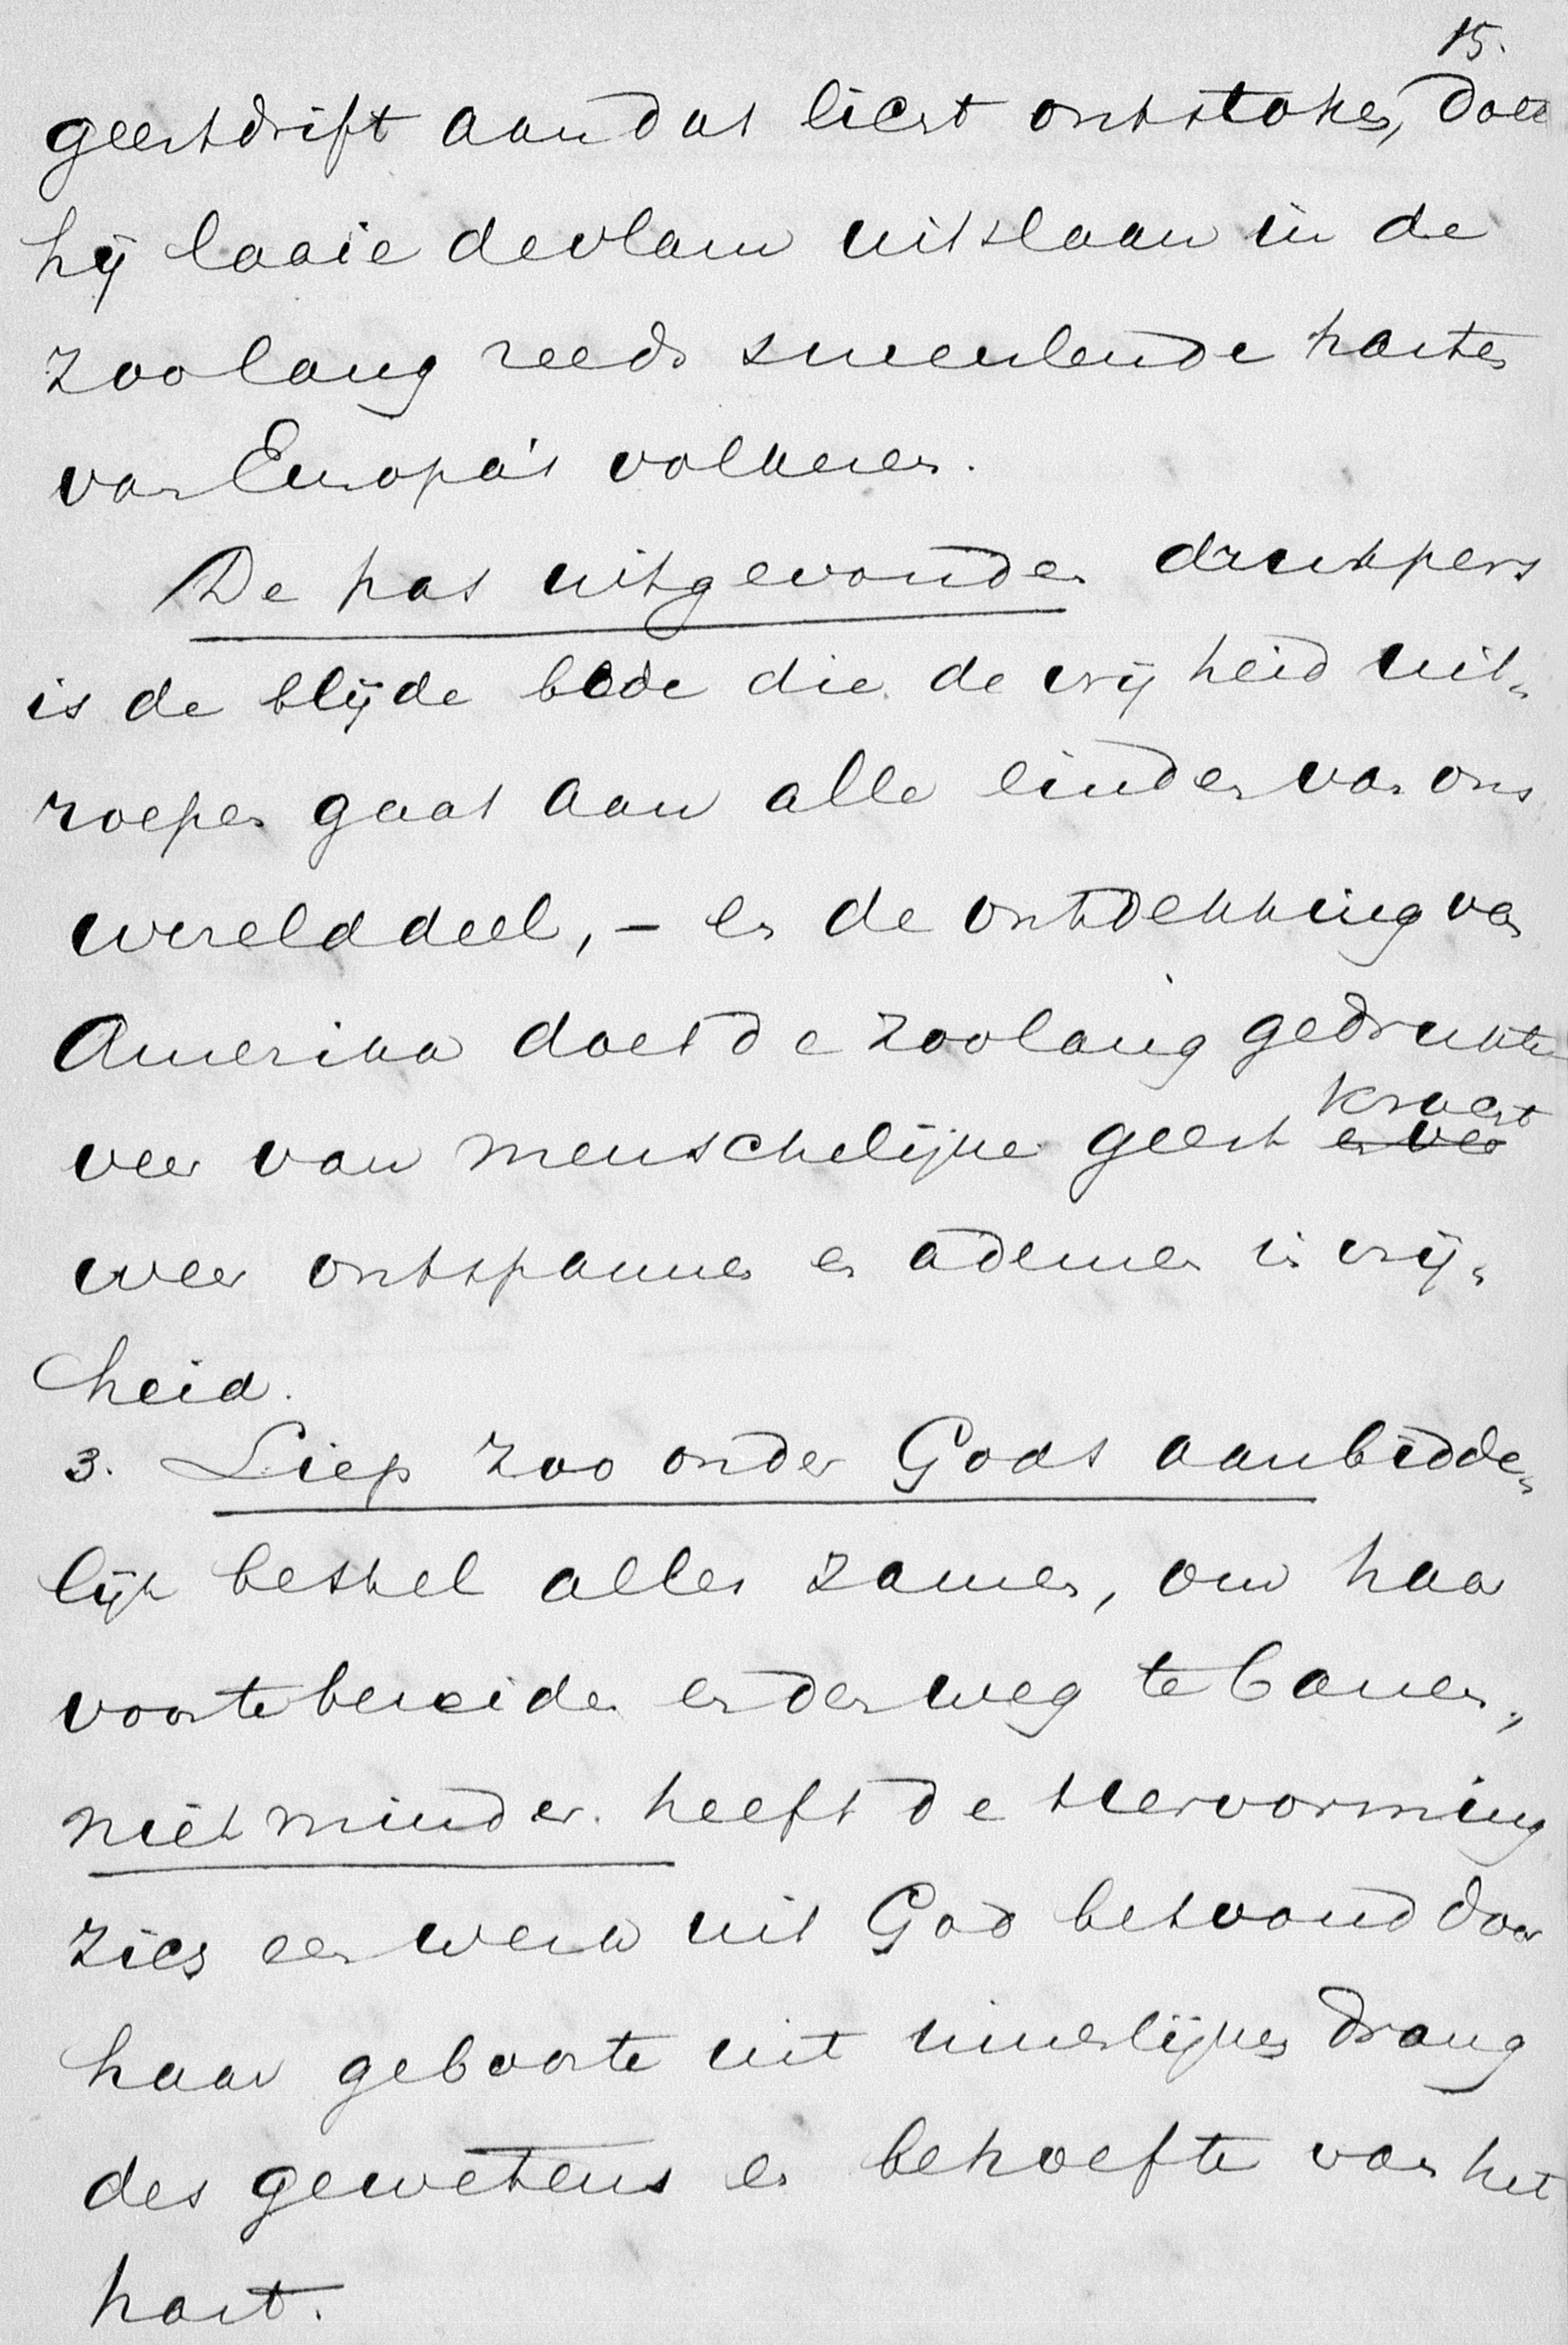 15.
geestdrift aan dat licht ontstoken, doet
hij laaie de vlam uitslaan in de
zoo lang reeds smeulende harten
van Europa's volkeren.
De pas uitgevonden drukpers
is de blijde bode die de vrijheid uit-
roepen gaat aan alle einden van ons
werelddeel, – en de ontdekking van
Amerika doet de zoolang gedrukte
veer van menschelijke geest kracht
weer ontspannen en ademen in vrij-
heid.
3. Liep zoo onder Gods aanbidde-
lijk bestel alles zamen, om haar
voor te bereiden en den weg te banen,
niet minder heeft de Hervorming
zich een werk uit God betoond door
haar geboorte uit innerlijken drang
des gewetens en behoefte van het
hart.